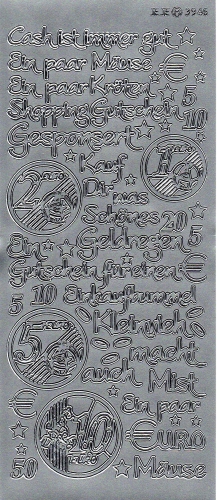 3946
Cash ist immer gut
Ein paar Mäuse €
Ein paar Kröten 5
Shopping Gutschein 10
Gesponsert
Kauf
2 EURO
Dir was
Schönes 20
Ein Geldregen 5
Gutschein für einen €
5 10 Einkaufbummel
Kleinvieh
5 EURO
macht
auch Mist
Ein paar
€ 10 EURO
€URO
50 Mäuse